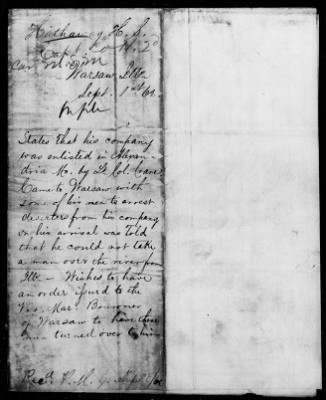 Hathaway H. S.
Capt. Co H. 2d
Cav
Warsaw Ills.
Sept. 1st 62.
States that his company
was enlisted in Alexan-
dria Mo. by Lt. Col.
Came to Warsaw with
some of his men to arrest
deserters from his company
on his arrival was told
that he could not take
a man over the river from
Ills - Wishes to have
an order issued to the
Pro. Mar.
of Warsaw to have these
men turned over to him
Recd. P. M. G.